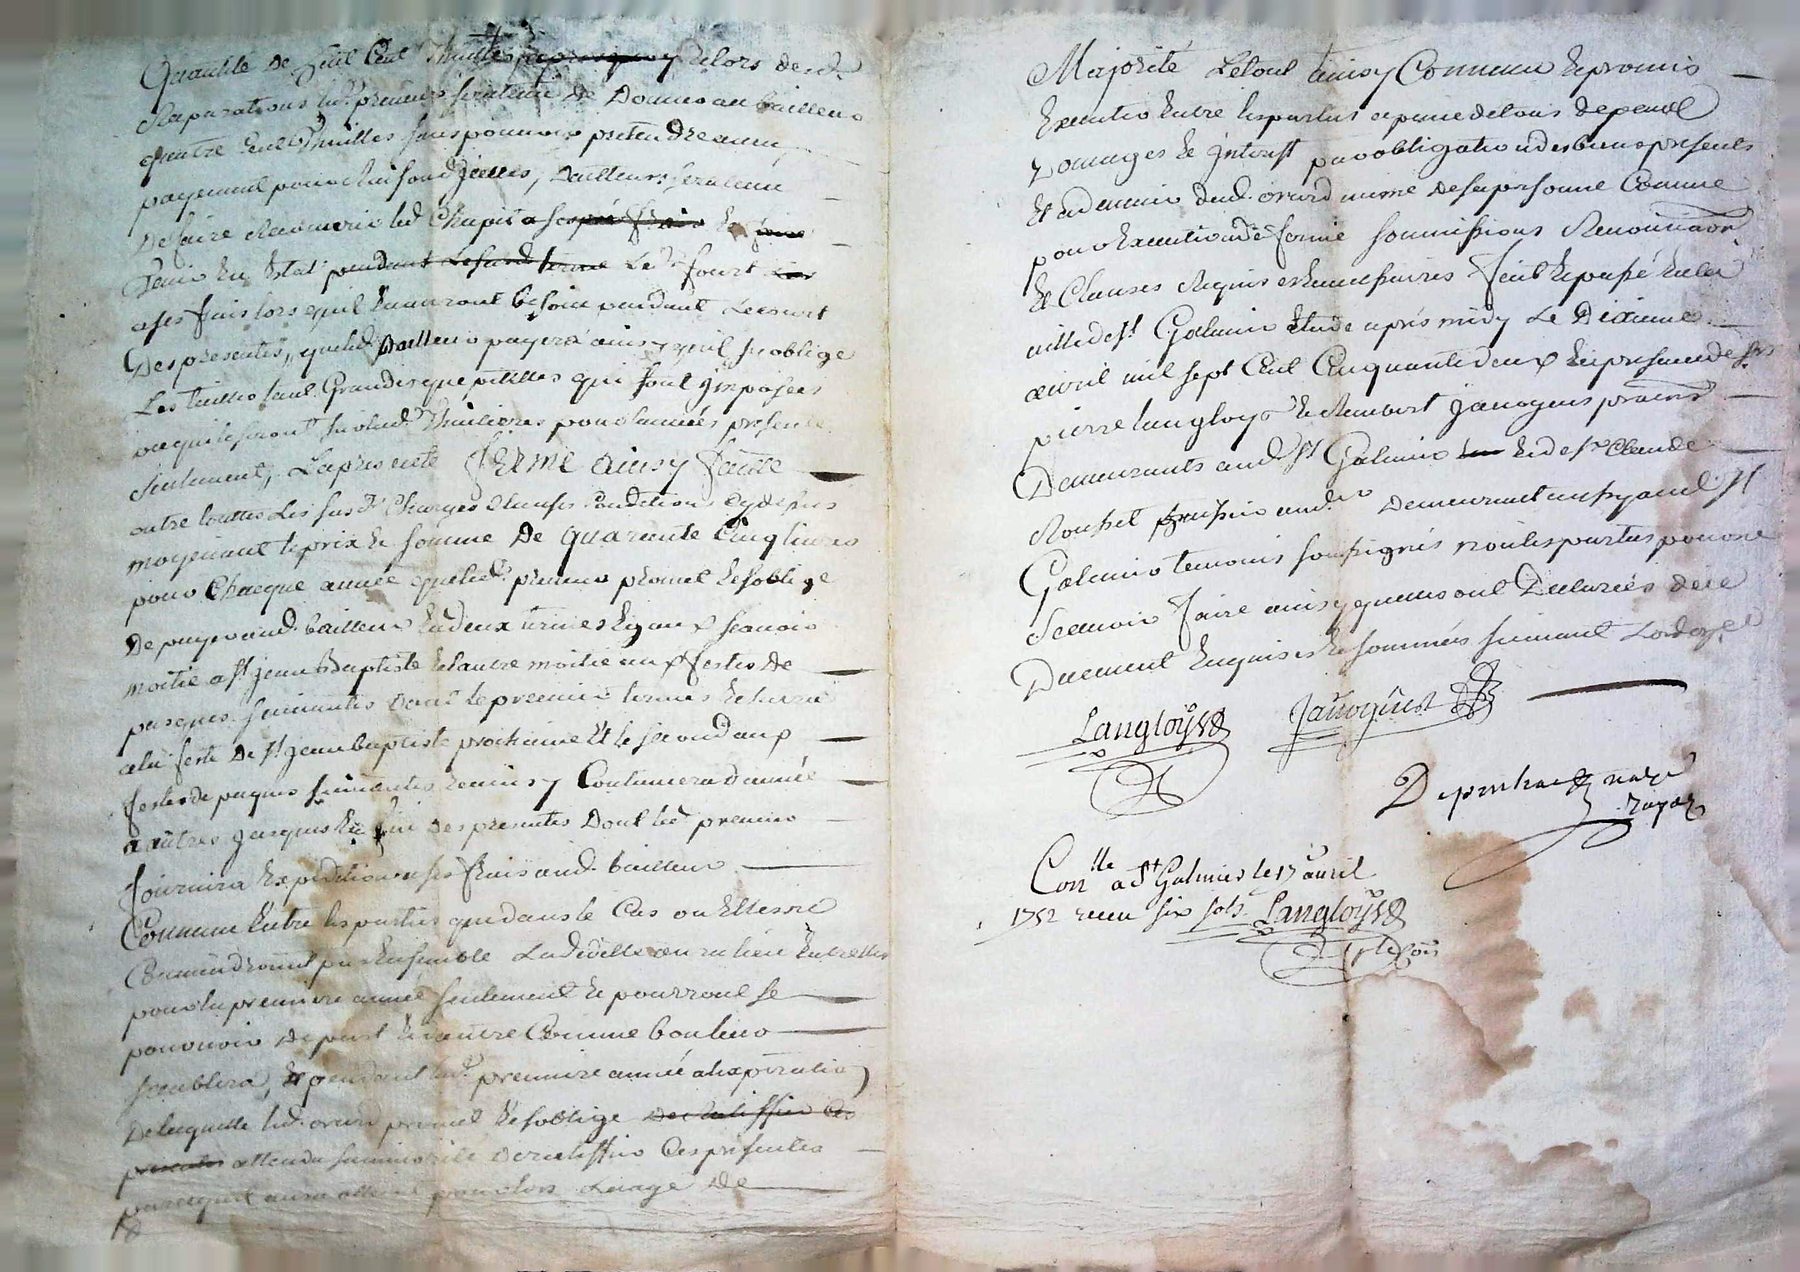 quantité de huit Cent Thuilles et lors desd.
Reparations led. preneur sera tenu de Donner au bailleur
quatre Cent Thuilles sans pouvoir pretendre aucun
payement pour la faison d'jcelles, D'ailleurs sera tenu
De faire led. Chapit a ses
Tenir En Estat pendant Le fourt
a ses frais lors quil En auront besoin pendant Le court
Des presentes, que led. Bailleur payera ainsy quil s'oblige
Les tailles tant Grandes que petittes qui sont jmposées
ou qui le seront sur lad. Thuilieres pour l'année presente
seulement, La presente ferme ainsy faitte
outre touttes Les susd. Charges Clauses Conditions cy dessus
moyenant le prix Et somme De quarante Cinq livres
pour Chacque année que led. preneur promet Et s'oblige
De payer aud. bailleur En deux termes Egaux scavoir
moitié a St jean Baptiste Et l'autre moitié aux festes De
pasques suivantes dont le premier terme Echerra
a la feste De St jean baptiste prochaine Et le second aux
festes de paques suivantes Et ainsy Continuera d'année
a autres jusques En fin des presentes Dont led. preneur
fournira Expedition a ses frais aud. bailleur
Convenu Entre les parties que dans le Cas ou Elles ne
Conviendroint pas Ensemble La d'editte aura lieu Entre elles
pour la premiere année seulement Et pourront se
pourvoir De part Et d'autre Comme bon leur
semblera, Et pendant lad. premiere année a l'expiration
De laquelle led. promet Et s'oblige De ratiffier Ces
presentes attendu sa minorité De ratiffier Ces presentes
parcequil aura atteint pour lors L'aage De
Majorité Le tout ainsy Convenu Et promis
Execution Entre les parties a peine de tous depends
Domages Et jnterest par obligation des biens presents
Et advenir dud. meme De sa personne Comme
pour Execution De ferme soumissions Renonciations
Et Clauses Requises Et necessaires Fait Et passé En la
ville de St Galmier Etude aprés midy Le Dixieme
avril mil sept Cent Cinquante deux En presence de srs
pierre Langloys Et Rambert Janoyens praciens
Demeurants aud. St Galmier Et de sr Claude
Demeurant aussy aud. St
Galmier temoins soussignés non les parties pour ne
Scavoir Faire ainsy quelles ont Declarées de ce
Duement Enquises Et sommées suivant L'ordce
Langloÿs
Conlle a St Galmier le 17 avril
1752 receu six sols Langloÿs